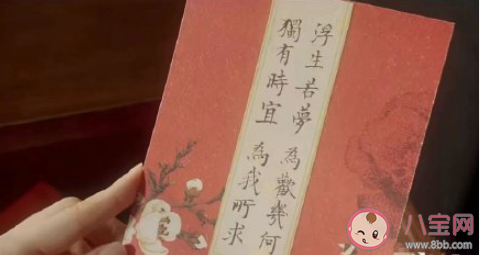 浮生若夢 為歡幾何
獨有時宜 為我所求
八宝网
www.8bb.com